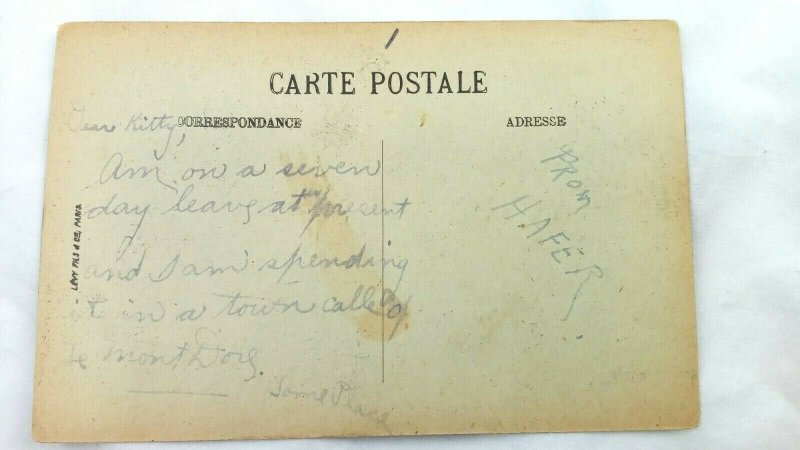 CARTE POSTALE
CORRESPONDANCE
ADRESSE
Dear Kitty,
Am on a seven
day leave at present
and I am spending
it in a town called
Le Mont Dore.
Some Place
FROM
HAFER
LEVY FILS & CIE, PARIS